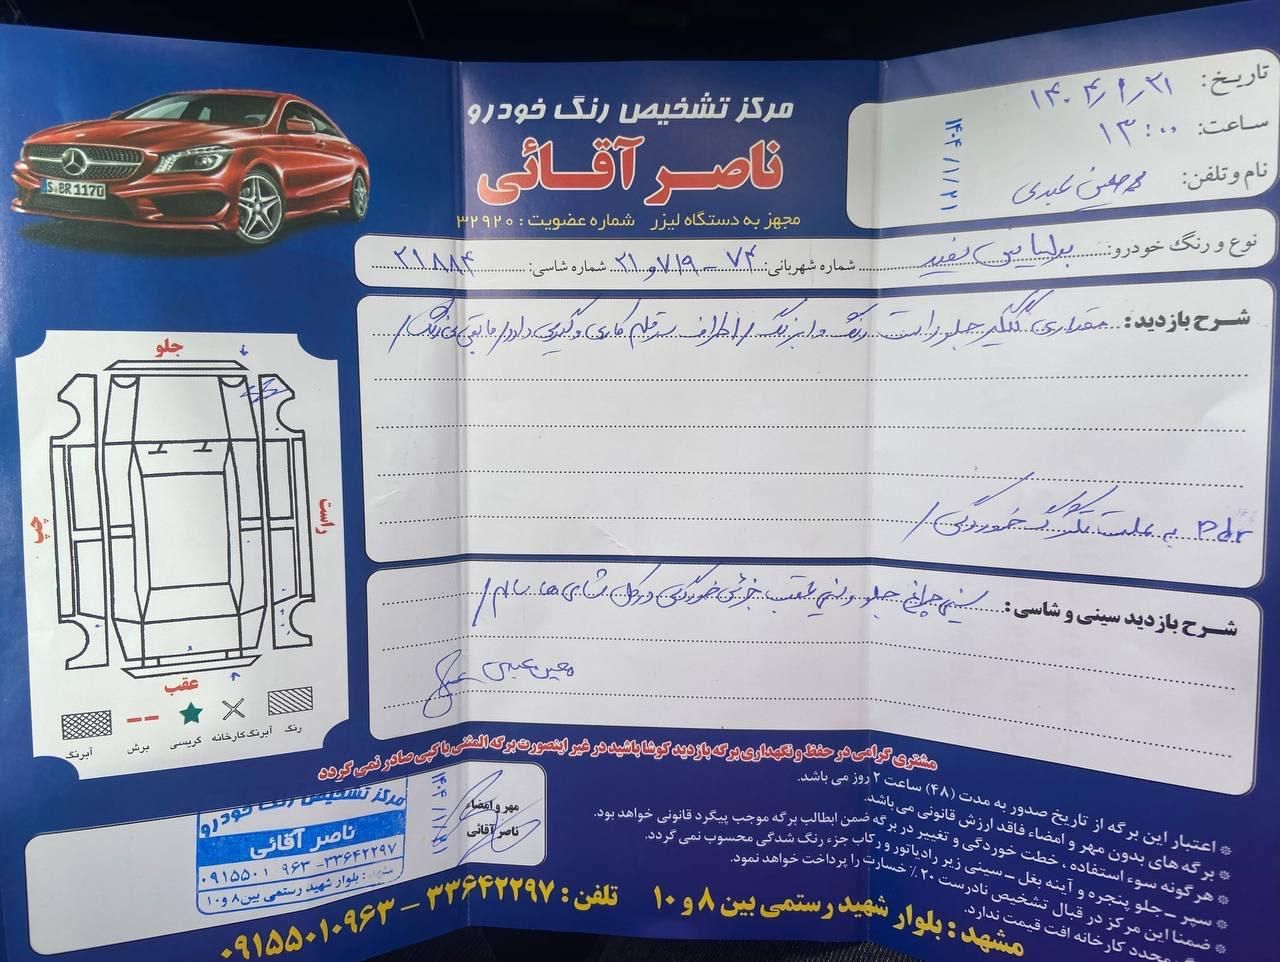 S BR 1170
مرکز تشخیص رنگ خودرو
ناصر آقائی
مجهز به دستگاه لیزر شماره عضویت : ۳۲۹۲۰
تاریخ: ۱۴۰۴/۱/۲۱
ساعت: ۱۳:۰۰
نام و تلفن: عبدی
۱۴۰۴/۱/۲۱
نوع و رنگ خودرو: سفید
شماره شهربانی: ۷۴ – ۷۱۹ و ۲۱ شماره شاسی: ۲۱۸۸۴
شرح بازدید: مقداری گلگیر جلو راست رنگ و ابرنگ / اطراف سر قلم کاری و گیری دارد / مابقی بی رنگ /
P.d.r به علت تگرگ خوردگی /
شرح بازدید سینی و شاسی: سینی چراغ جلو و سینی عقب جزئی خوردگی در کل شاسی ها سالم /
معین عبدی
جلو
راست
چپ
عقب
رنگ
آبرنگ کارخانه
گریسی
برش
آبرنگ
مشتری گرامی در حفظ و نگهداری برگه بازدید کوشا باشید در غیر اینصورت برگه المثنی یا کپی صادر نمی گردد
* اعتبار این برگه از تاریخ صدور به مدت (۴۸) ساعت ۲ روز می باشد.
* برگه های بدون مهر و امضاء فاقد ارزش قانونی می باشد.
* هرگونه سوء استفاده ، خطت خوردگی و تغییر در برگه ضمن ابطالب برگه موجب پیگرد قانونی خواهد بود.
* سپر - جلو پنجره و آینه بغل - سینی زیر رادیاتور و رکاب جزء رنگ شدگی محسوب نمی گردد.
* ضمنا این مرکز در قبال تشخیص نادرست ۲۰٪ خسارت را پرداخت خواهد نمود.
محدد کارخانه افت قیمت ندارد.
مهر و امضاء
ناصر آقائی
۱۴۰۴/۱/۲۱
مرکز تشخیص رنگ خودرو
ناصر آقائی
۰۹۱۵۵۰۱۰۹۶۳-۳۳۶۴۲۲۹۷
مشهد: بلوار شهید رستمی بین ۸ و ۱۰
مشهد : بلوار شهید رستمی بین ۸ و ۱۰ تلفن : ۳۳۶۴۲۲۹۷ – ۰۹۱۵۵۰۱۰۹۶۳